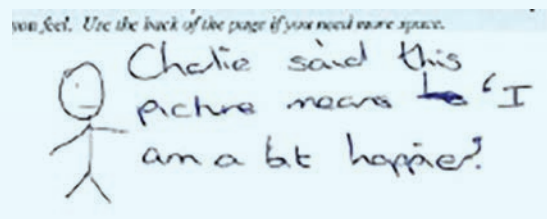 you feel. Use the back of the page if you need more space.
Charlie said this
picture means 'I
am a bit happier'.